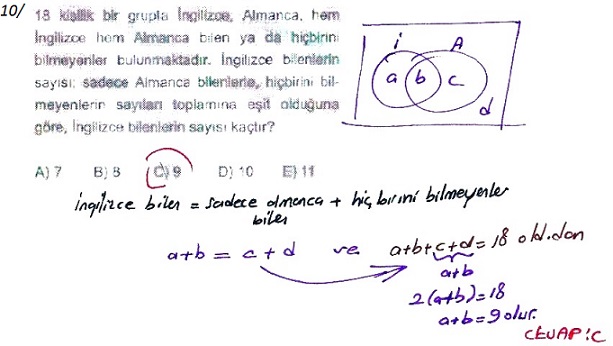 10/ 18 kişilik bir grupta İngilizce, Almanca, hem
İngilizce hem Almanca bilen ya da hiçbirini
bilmeyenler bulunmaktadır. İngilizce bilenlerin
sayısı; sadece Almanca bilenlerle, hiçbirini bil-
meyenlerin sayıları toplamına eşit olduğuna
göre, İngilizce bilenlerin sayısı kaçtır?
i A
a b c
d
A) 7 B) 8 C) 9 D) 10 E) 11
ingilizce bilen = sadece almanca + hiç birini bilmeyenler
bilen
a+b = c+d ve a+b+c+d = 18 old.dan
a+b
2(a+b)=18
a+b=9 olur.
CEVAP:C